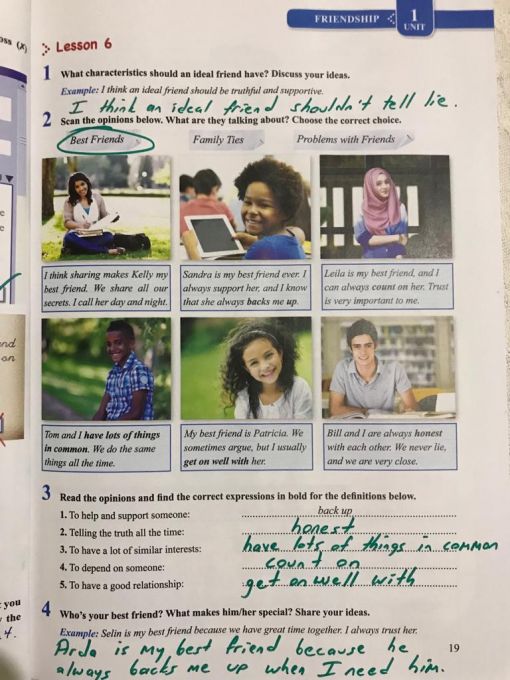 FRIENDSHIP
1
UNIT
oss (X)
Lesson 6
1 What characteristics should an ideal friend have? Discuss your ideas.
Example: I think an ideal friend should be truthful and supportive.
I think an ideal friend shouldn't tell lie.
2 Scan the opinions below. What are they talking about? Choose the correct choice.
Best Friends Family Ties Problems with Friends
I think sharing makes Kelly my
best friend. We share all our
secrets. I call her day and night.
Sandra is my best friend ever. I
always support her, and I know
that she always backs me up.
Leila is my best friend, and I
can always count on her. Trust
is very important to me.
Tom and I have lots of things
in common. We do the same
things all the time.
My best friend is Patricia. We
sometimes argue, but I usually
get on well with her.
Bill and I are always honest
with each other. We never lie,
and we are very close.
3 Read the opinions and find the correct expressions in bold for the definitions below.
1. To help and support someone: back up
2. Telling the truth all the time: honest
3. To have a lot of similar interests: have lots of things in common
4. To depend on someone: count on
5. To have a good relationship: get on well with
4 Who's your best friend? What makes him/her special? Share your ideas.
Example: Selin is my best friend because we have great time together. I always trust her.
Arda is my best friend because he
always backs me up when I need him.
19
e
e
nd
on
you
the
4.